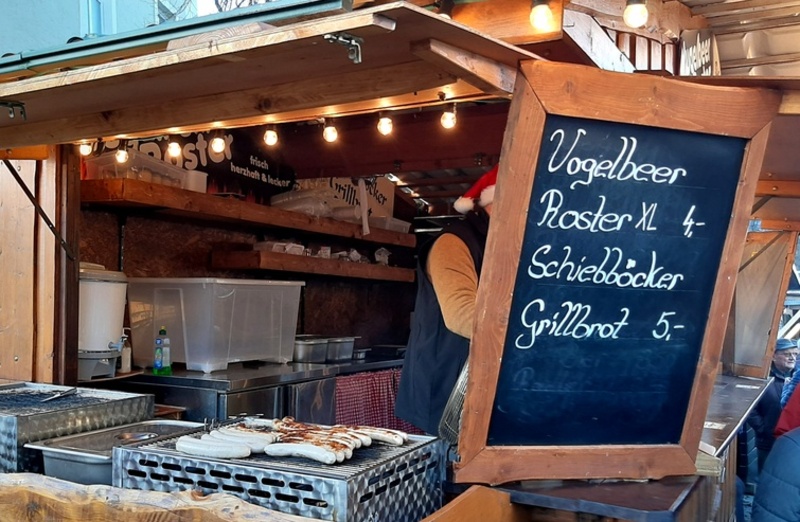 Roster
frisch
herzhaft & lecker
Grillbrot
Vogelbeer
Roster XL 4,-
Schiebböcker
Grillbrot 5,-